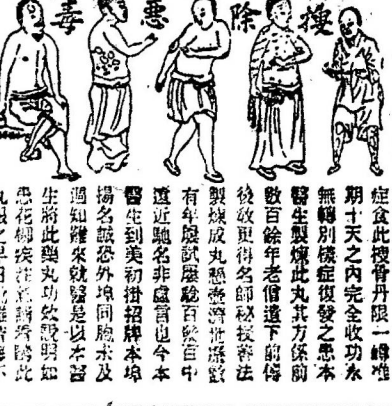 搜除惡毒
症食此搜骨丹限一緯准
期十天之內完全收功永
無轉別樣症復發之患本
醫生製煉此丸其方係前
數百餘年老僧遺下前傳
後教更得名師秘授善法
製煉成丸懸壺濟世歷數
有年屢試屢驗百發百中
遠近馳名非虛言也今本
醫生到美初掛招牌本埠
揚名誠恐外埠同胞未及
週知難來就醫是以本醫
生將此藥丸功效說明如
患花柳疾症意請看購此